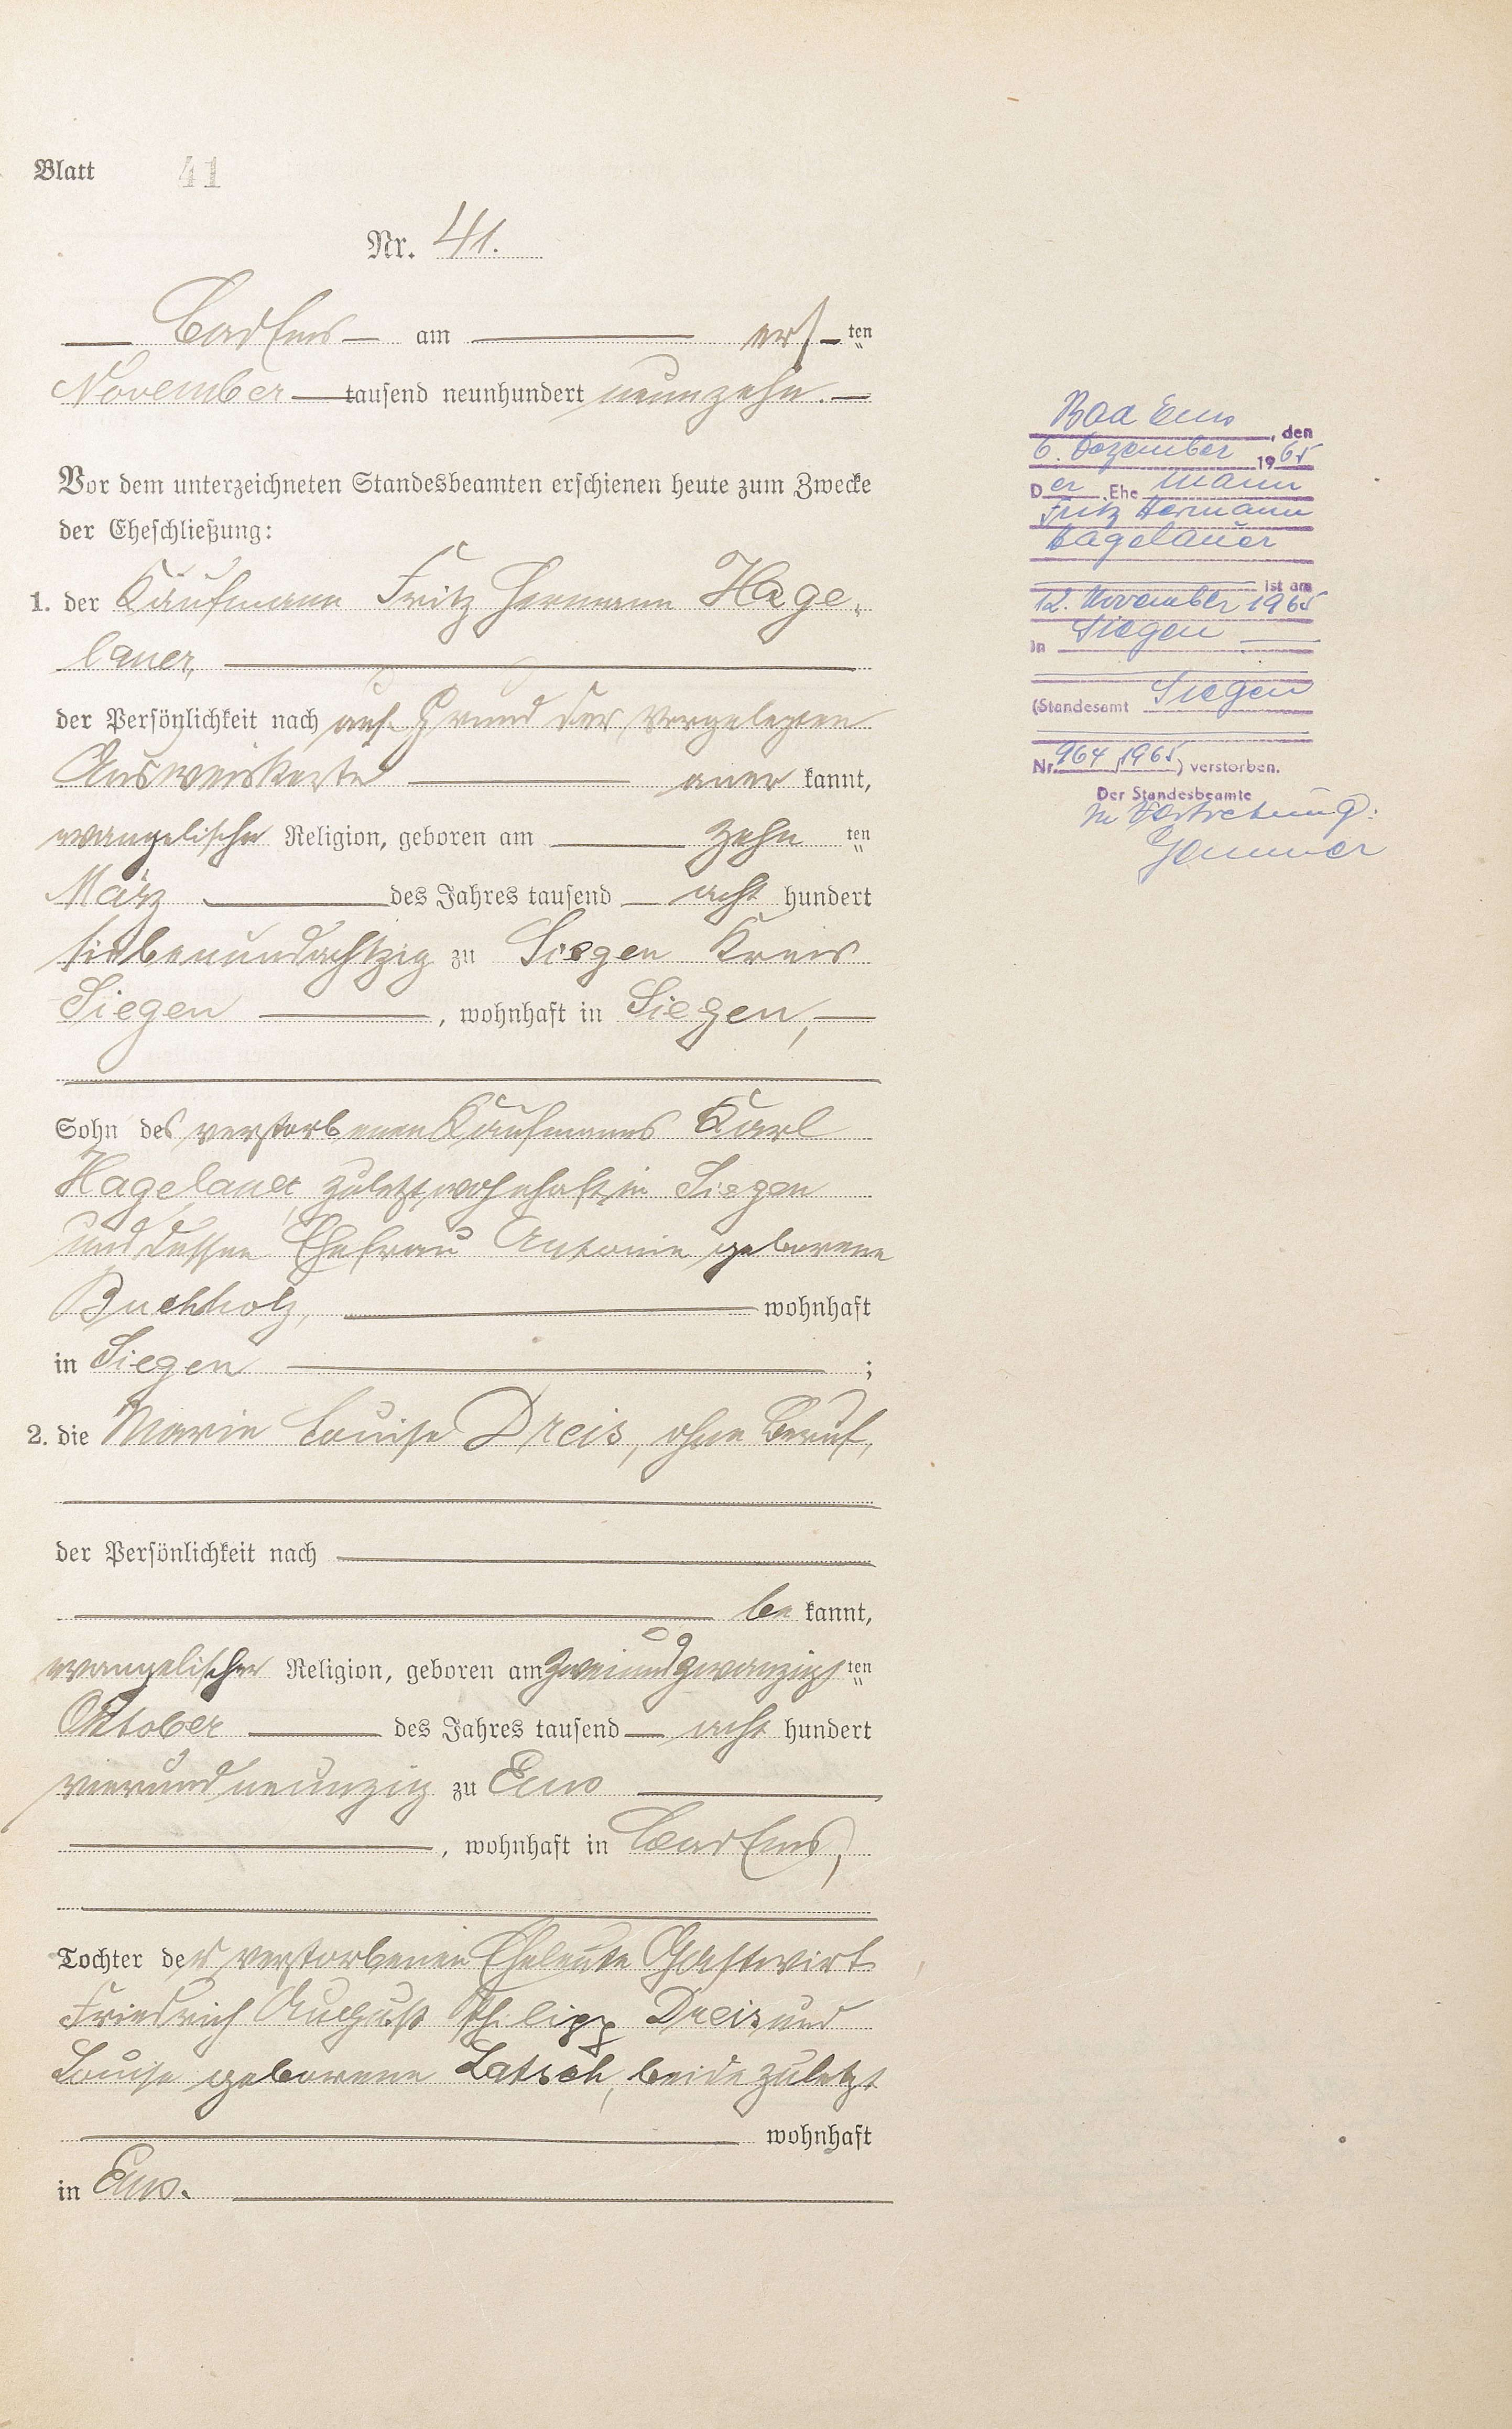 Blatt 41
Nr. 41.
Bad Ems am ersten
November tausend neunhundert neunzehn.
Vor dem unterzeichneten Standesbeamten erschienen heute zum Zwecke
der Eheschließung:
1. der Kaufmann Fritz Hermann Hage-
lauer,
der Persönlichkeit nach auf Grund der vorgelegten
Ausweiskarte anerkannt,
evangelischer Religion, geboren am zehnten
März des Jahres tausend achthundert
siebenundachtzig zu Siegen Kreis
Siegen, wohnhaft in Siegen,
Sohn des verstorbenen Kaufmanns Karl
Hagelauer, zuletzt wohnhaft in Siegen
und dessen Ehefrau Antonie geborene
Buchholz, wohnhaft
in Siegen;
2. die Marie Louise Dreis, ohne Beruf,
der Persönlichkeit nach
bekannt,
evangelischer Religion, geboren am zweiundzwanzigsten
Oktober des Jahres tausend achthundert
vierundneunzig zu Ems
, wohnhaft in Bad Ems,
Tochter der verstorbenen Eheleute Gastwirt
Friedrich August Philipp Dreis und
Louise geborene Latsch, beide zuletzt
wohnhaft
in Ems.
Bad Ems, den
6. Dezember 1965
Der Ehemann
Fritz Hermann
Hagelauer
ist am
12. November 1965
in Siegen
(Standesamt Siegen
Nr. 964/1965) verstorben.
Der Standesbeamte
In Vertretung: